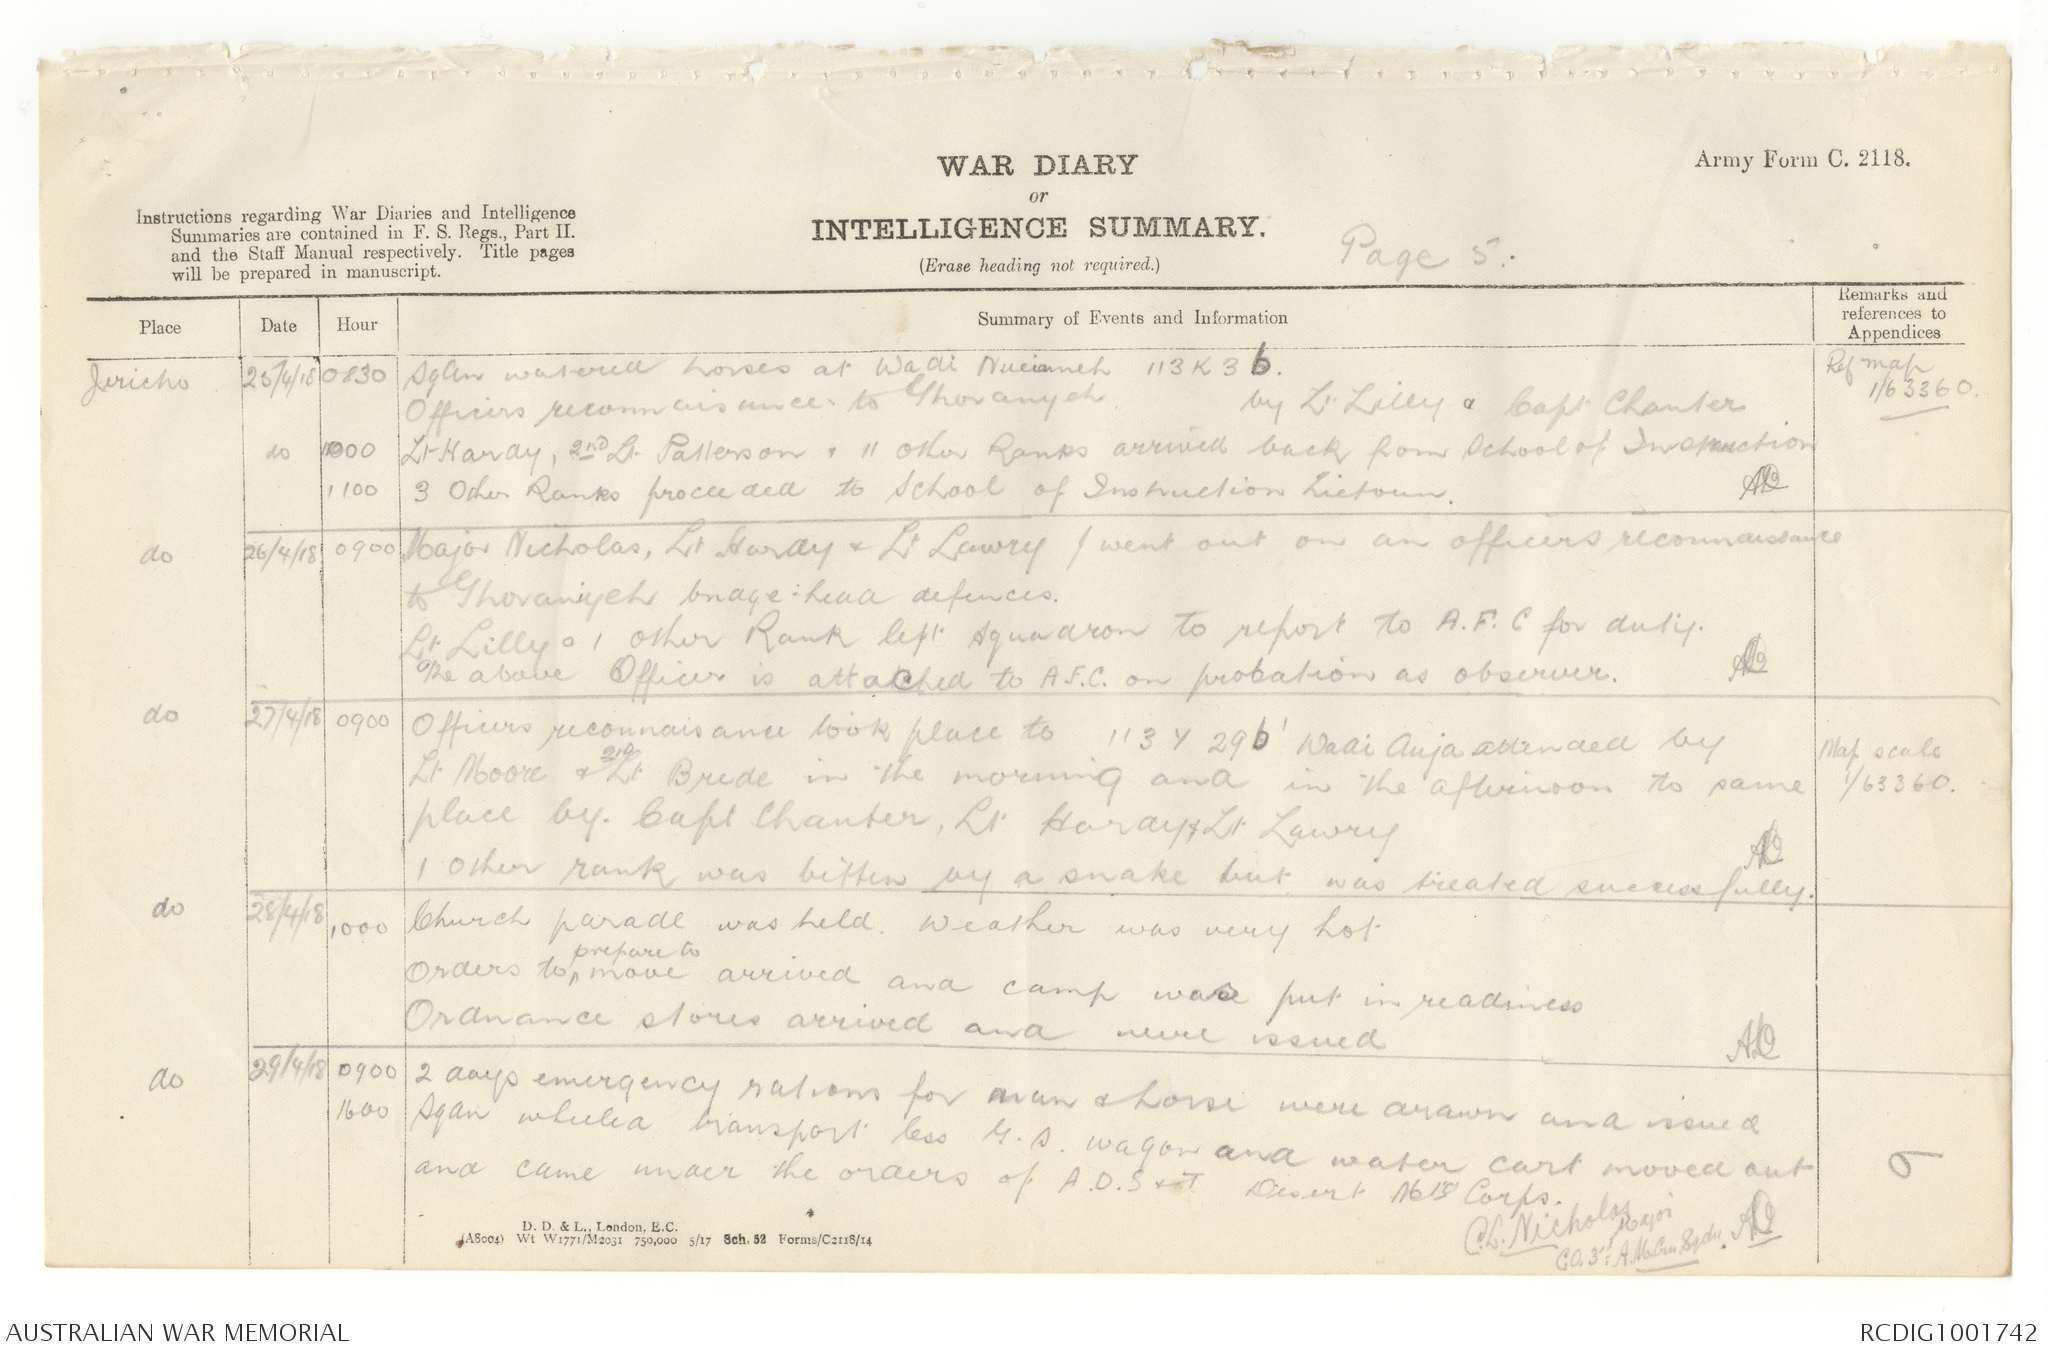 WAR DIARY
or
INTELLIGENCE SUMMARY.
(Erase heading not required.)
Army Form C. 2118.
Instructions regarding War Diaries and Intelligence
Summaries are contained in F. S. Regs., Part II.
and the Staff Manual respectively. Title pages
will be prepared in manuscript.
Page 5.
Place Date Hour Summary of Events and Information Remarks and references to Appendices
Jericho 25/4/18 0830 Sqdn watered horses at Wadi Nueiameh 113 K 3 b. Ref map
Officers reconnaisance to Ghoraniyeh by Lt Lilly & Capt Chanter 1/63360.
do 1000 Lt Hardy, 2nd Lt Patterson & 11 other Ranks arrived back from School of Instruction
1100 3 Other Ranks proceeded to School of Instruction Zietoun.
do 26/4/18 0900 Major Nicholas, Lt Hardy & Lt Lawry / went out on an officers reconnaissance
to Ghoraniyeh bridge-head defences.
Lt Lilly & 1 other Rank left squadron to report to A.F.C for duty.
The above Officer is attached to A.F.C. on probation as observer.
do 27/4/18 0900 Officers reconnaisance took place to 113 Y 29 b Wadi Auja attended by Map scale
Lt Moore & 2nd Lt Brede in the morning and in the afternoon to same 1/63360.
place by. Capt Chanter, Lt Hardy & Lt Lawry
1 Other rank was bitten by a snake but was treated successfully.
do 28/4/18 1000 Church parade was held. Weather was very hot
Orders to prepare to move arrived and camp was put in readiness
Ordnance stores arrived and were issued
do 29/4/18 0900 2 days emergency rations for man & horse were drawn and issued
1600 Sqdn wheeled transport less G.S. wagon and water cart moved out
and came under the orders of A.D.S & T Desert Mtd Corps.
C.L. Nicholas Major
C.O. 3rd A.M. Gun Sqdn.
5
D. D. & L., London, E.C.
(A8004) Wt W1771/M2031 750,000 5/17 Sch. 52 Forms/C2118/14
AUSTRALIAN WAR MEMORIAL
RCDIG1001742